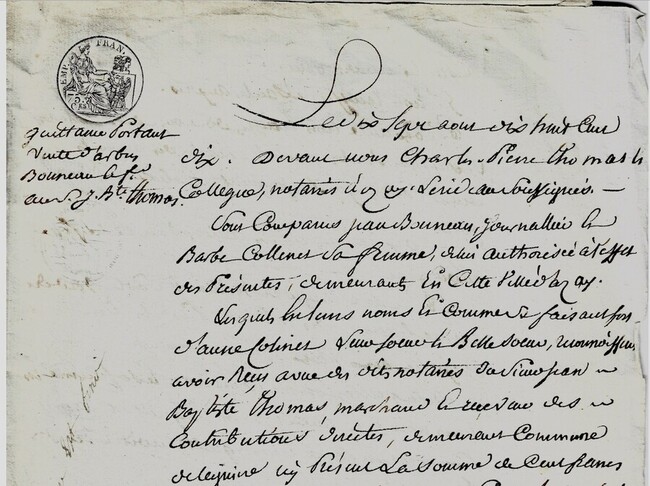 EMP. FRAN.
quittance Portant
Vente d'arbres
Bonneau & f.e
au S. J. B.te Thomas.
Le dix Sept aout dix huit Cent
dix. Devant nous Charles-Pierre Thomas &
Collegue, notaires à Soussignés. —
Sont Comparus jean Bonneau, journallier &
Barbe Collinet Sa femme, de lui authorisée à l'effet
des Présentes, demeurants En Cette Ville d'azay.
Lesquels En leurs noms & Comme Se faisant fort
d'anne Colinet Leur Soeur & Belle Soeur, reconnoissent
avoir Reçu avue des dits notaires du Sieur jean
Baptiste Thomas, marchand & receveur des
Contributions directes, demeurant Commune
de Leignière ici Présent La Somme de Cent francs